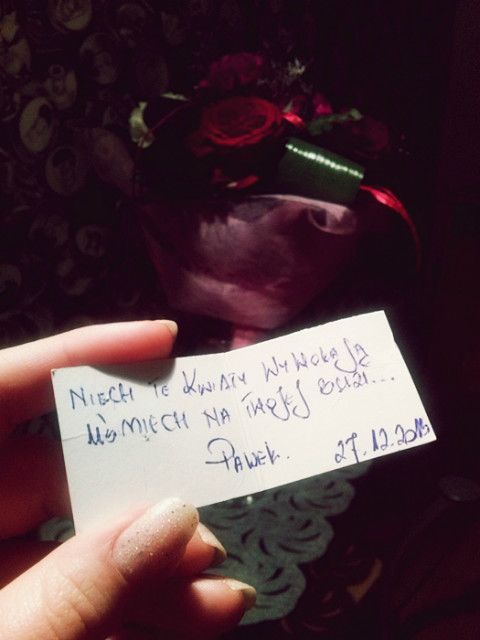 NIECH TE KWIATY WYWOŁAJĄ
UŚMIECH NA TWOJEJ BUZI...
PAWEŁ. 27.12.2015